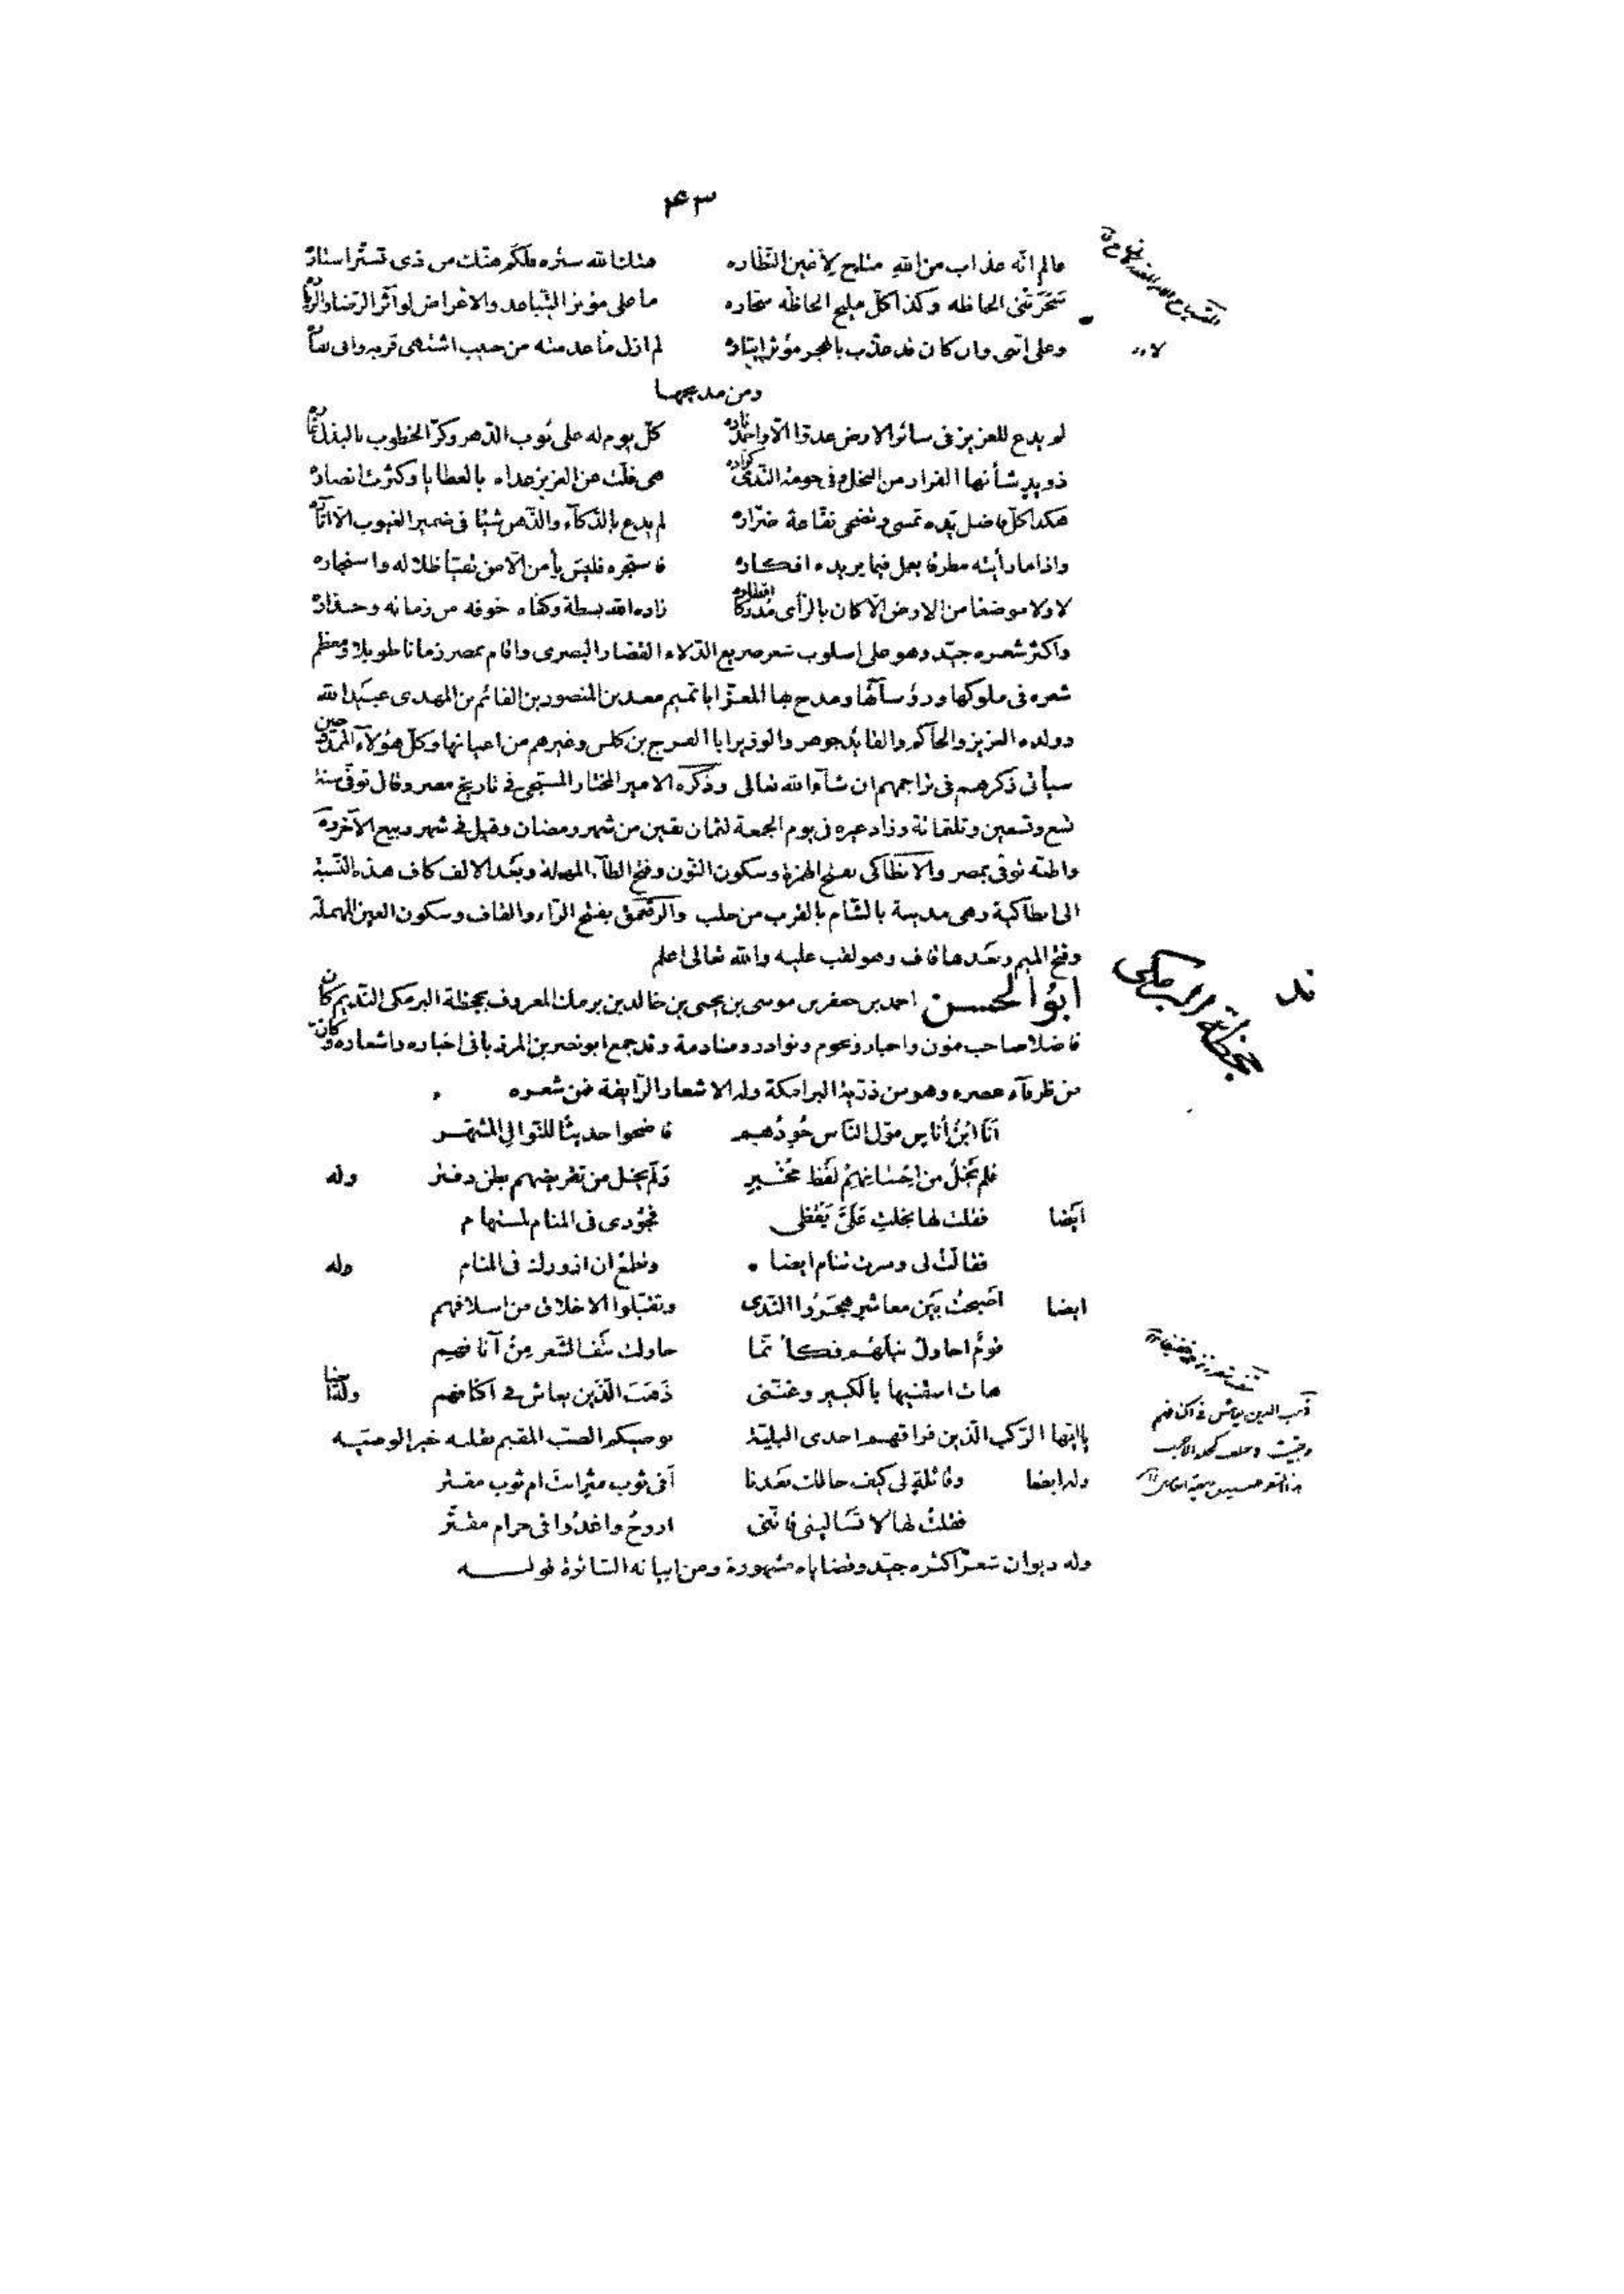 ٤٣
عالم انّه عذاب من الله متاح لأعين النظاره هتك الله ستره فلكم هتك من ذى تستّر استاره
سَحَرَتْنى الحاظه وكذا كلّ مليح الحاظه سحّاره ما على مؤثر التباعد والاعراض لو آثر الرضا والزياره
وعلى انّنى وان كان قد عذّب بالهجر مؤثر ايثاره لم ازل لا عدمته من حبيب اشتهى قربه وابى نفاره
ومن مديحها
لم يدع للعزيز فى سائر الارض عدوّا الّا واخمد ناره كلّ يوم له على نُوب الدهر وكرّ الخطوب بالبذل غاره
ذو يد شأنها الفرار من البخل وفى حومة الندى كرّاره هى فلّت عن العزيز عداه بالعطايا وكثّرت انصاره
هكذا كلّ فاضل يده تمسى وتضحى نفّاعة ضرّاره لم يدع بالذكآء والذهن شيئا فى ضمير الغيوب الّا اثاره
واذا ما رأيته مطرقا يعمل فيما يريده افكاره فاستجره فليس يأمن الّا من تفيّأ ظلاله واستجاره
لا ولا موضعا من الارض الّا كان بالرأى مُدركا اقطاره زاده الله بسطة وكفاه خوفه من زمانه وحذاره
واكثر شعره جيّد وهو على اسلوب شعر صريع الدّلاء القصار البصرى واقام بمصر زمانا طويلا ومعظم
شعره فى ملوكها ورؤسآئها ومدح بها المعزّ ابا تميم معد بن المنصور بن القائم بن المهدى عبيد الله
وولده العزيز والحاكم والقايد جوهر والوزير ابا الفرج بن كلس وغيرهم من اعيانها وكلّ هؤلآء الممدوحين
سيأتى ذكرهم فى تراجمهم ان شآء الله تعالى وذكره الامير المختار المسبّحى فى تاريخ مصر وقال توفّى سنة
تسع وتسعين وثلثمائة وزاد غيره فى يوم الجمعة لثمان بقين من شهر رمضان وقيل فى شهر ربيع الآخر وه
واظنّه توفّى بمصر والانطاكى بفتح الهمزة وسكون النّون وفتح الطآء المهملة وبعد الالف كاف هذه النّسبة
الى انطاكية وهى مدينة بالشّام بالقرب من حلب والرّقعمق بفتح الرّاء والقاف وسكون العين المهملة
وفتح الميم وبعدها قاف وهو لقب عليه والله تعالى اعلم
ابوُ الحسن احمد بن جعفر بن موسى بن يحيى بن خالد بن برمك المعروف بجحظة البرمكى النّديم كان
فاضلا صاحب فنون واخبار ونجوم ونوادر ومنادمة وقد جمع ابو نصر بن المرزبانى اخباره واشعاره وكان
من ظرفآء عصره وهو من ذرّية البرامكة وله الاشعار الرّايقة فمن شعره
أنَا ابْنُ أناسٍ موّل النّاس جُودُهم فاضحوا حديثًا للنّوال المشهّر
فلم يَخْلُ من اِحْسانِهِمْ لَفْظ مُخْبِرٍ ولم يخل من تقريضهم بطن دفتر وله
ايضا فقلت لها بخلتِ عَلىَّ يَقْظى فجُودى فى المنام لمستهام
فقالت لى وصرت تنام ايضا وتطمع ان ازورك فى المنام وله
ايضا اصبحتُ بَيْن معاشرٍ هجَرُوا النّدى وتقبّلوا الاخلاق من اسلافهم
قومٌ احاول نيلهُم فكأنّما حاولت نَتْف الشّعر مِنْ آنافهم
هات اسقنيها بالكبير وغنّنى ذَهَبَ الّذين يعاش فى اكنافهم وله ايضا
يا ايّها الرّكب الّذين فراقهم احدى البليّة يوصيكم الصبّ المقيم بقلبه خير الوصيّه
وله ايضا وقائلةٍ لى كيف حالك بَعْدنا أفى ثوب مثرٍ انتَ ام ثوب مقتر
فقلتُ لها لا تسَأليني فانّنى اروحُ واغدُوا فى حرام مقتّر
وله ديوان شعرٍ اكثره جيّد وقضاياه مشهورة ومن ابياته السّائرة قوله
ند
جحظة البرمكى
ذهب الذين يعاش فى اكنافهم
وبقيت فى خلف كجلد الاجرب